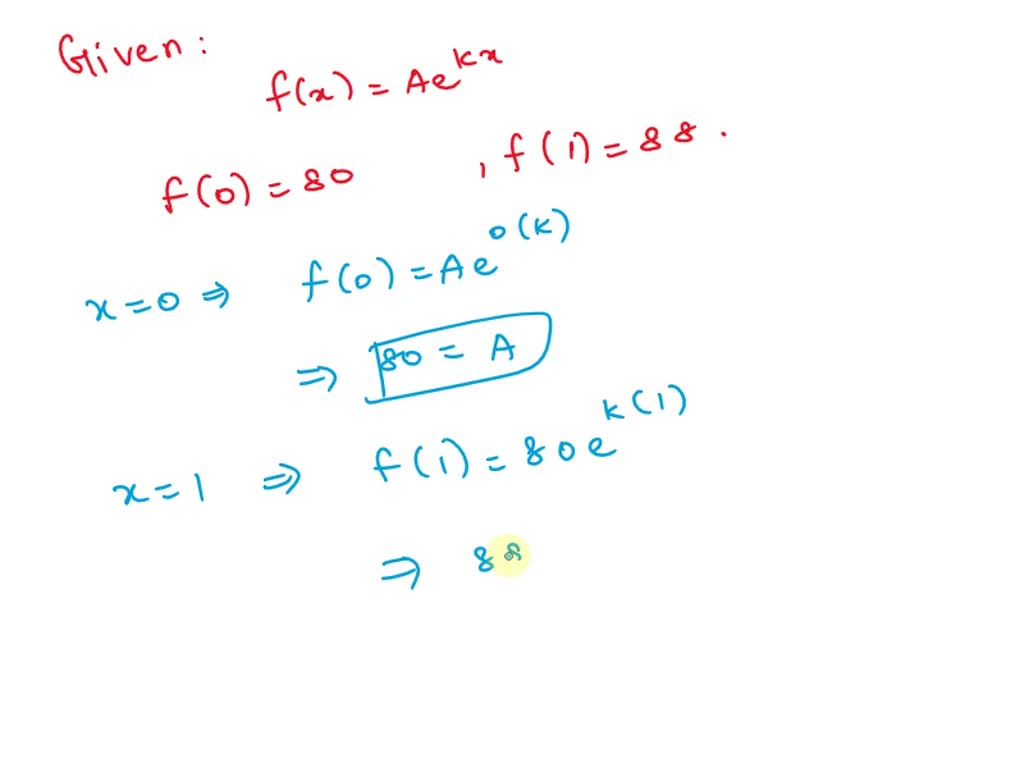 Given :
f(x) = Ae^{kx}
f(0) = 80 , f(1) = 88 .
x = 0 ⇒ f(0) = Ae^{0(k)}
⇒ 80 = A
x = 1 ⇒ f(1) = 80e^{k(1)}
⇒ 88